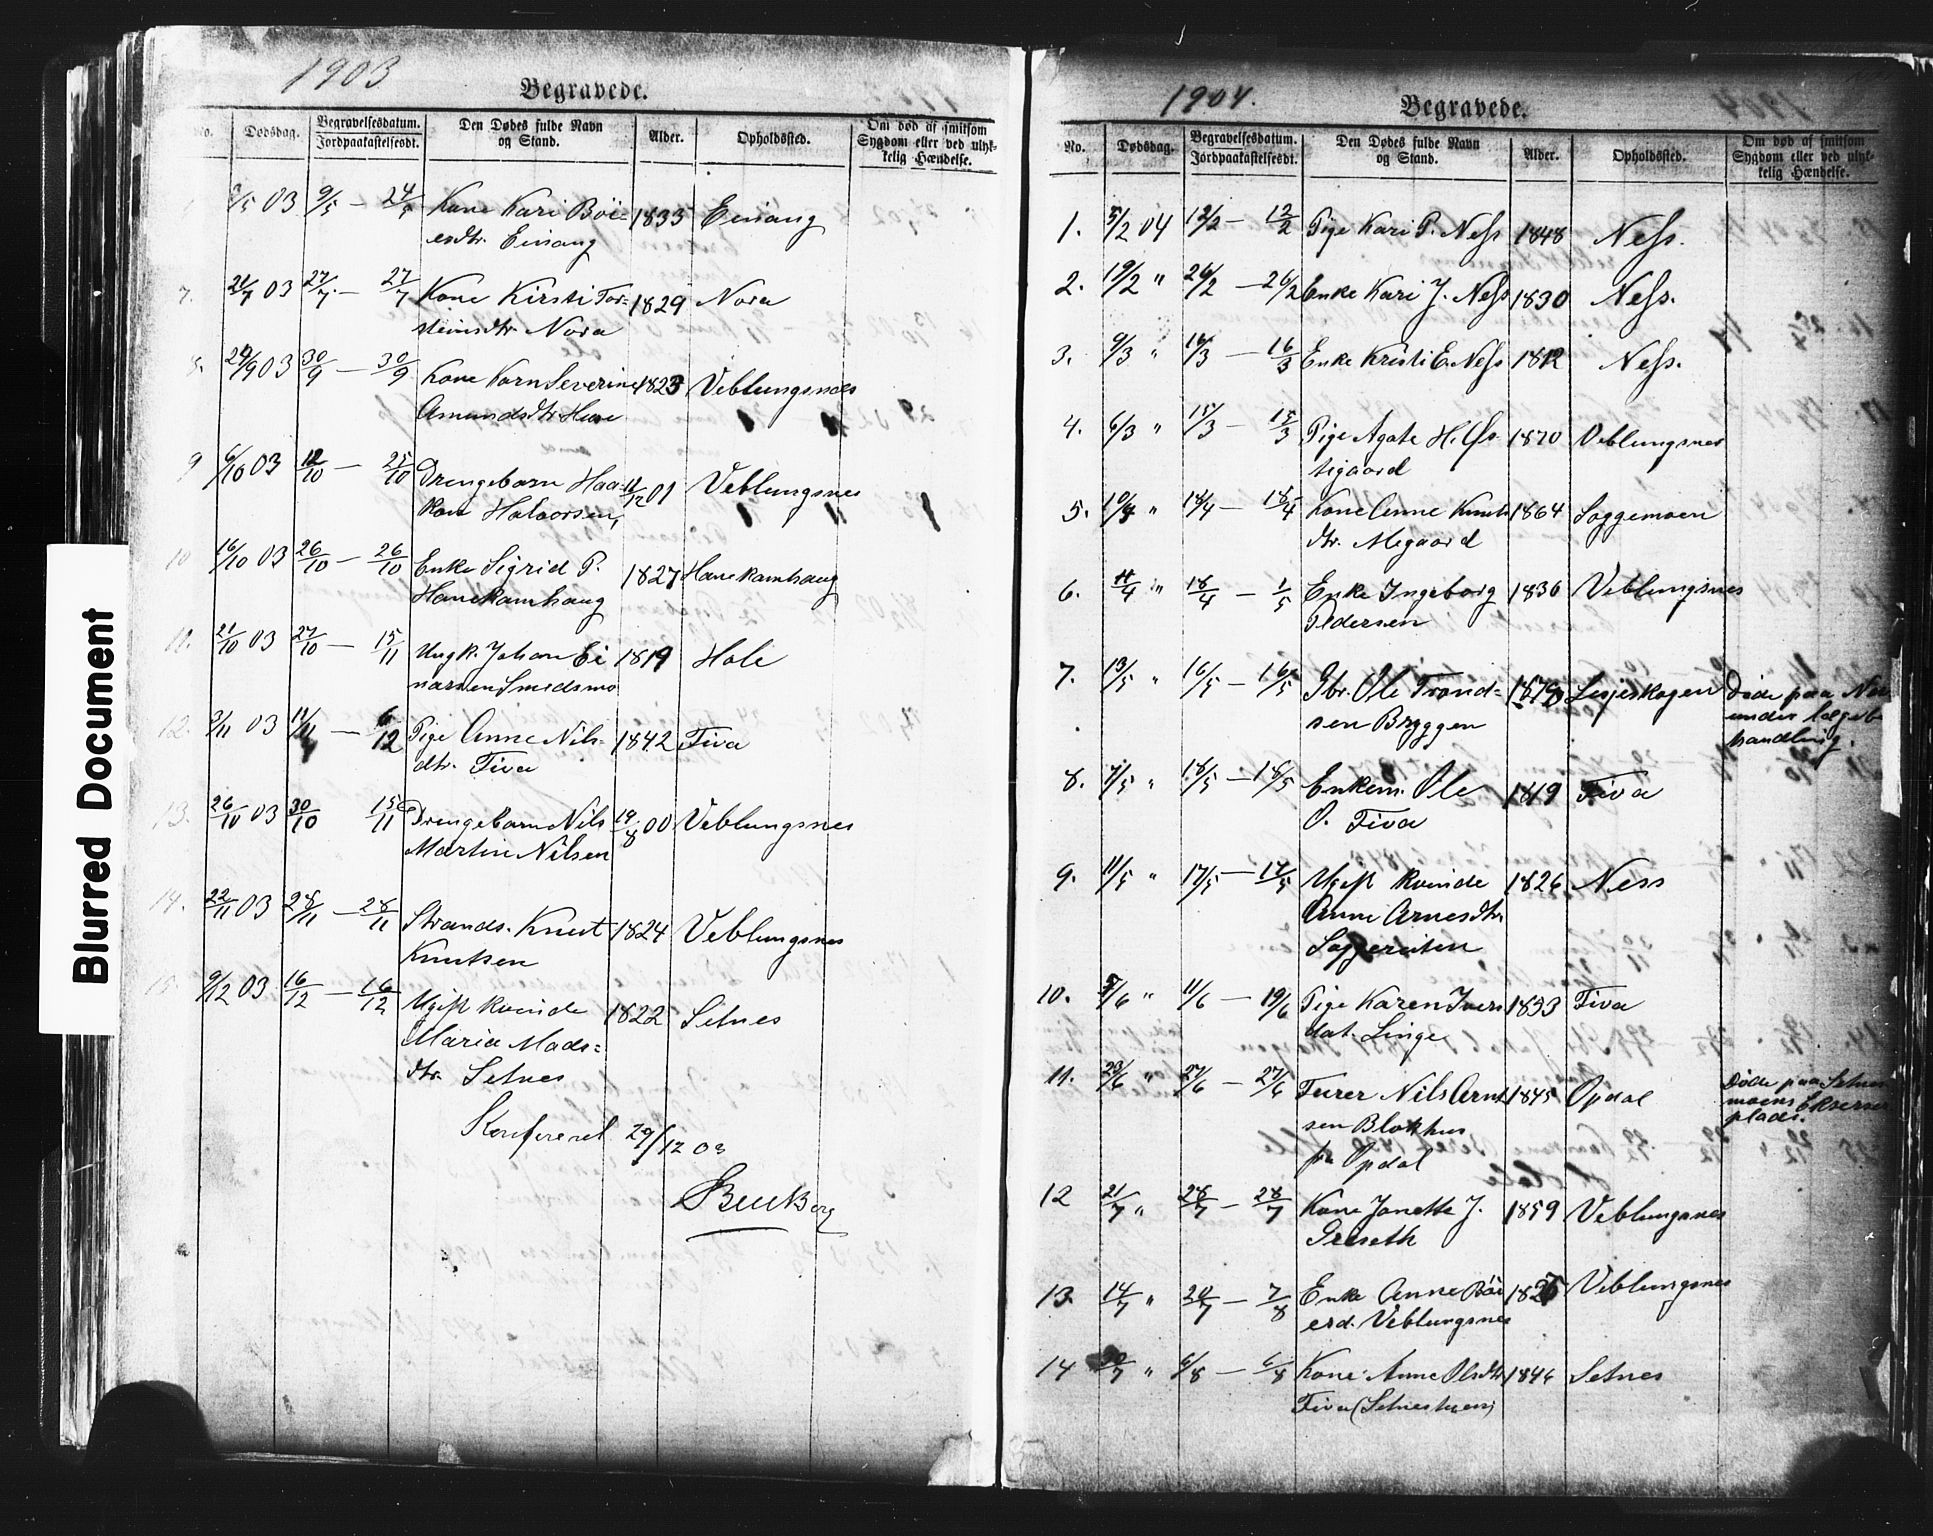 Blurred Document
1903
Begravede.
No.
Dødsdag.
Begravelsesdatum.
Jordpaakastelsesdt.
Den Dødes fulde Navn
og Stand.
Alder.
Opholdssted.
Om død af smitsom
Sygdom eller ved ulyk-
kelig Hændelse.
9/5 — 24/5 Kone Kari Böi- 1833 Einang
ersdtr. Einang
7. 21/7 03 27/7 — 27/7 Kone Kirsti Tor- 1829 Nora
steinsdtr. Nora
8. 24/9 03 30/9 — 30/9 Kone Karn Severine 1823 Veblungsnes
Amundsdtr.
9 6/10 03 12/10 — 25/10 Drengebarn Haa- 11/12 01 Veblungsnes
kon Halvorsen,
10 16/10 03 26/10 — 26/10 Enke Sigrid P. 1827 Hanekamhaug
Hanekamhaug
11. 21/10 03 27/10 — 15/11 Ungk. Johan Ei 1819 Hole
narsen Smedsmo
12. 3/11 03 11/11 — 6/12 Pige Anne Nils- 1842 Tiva
dtr. Tiva
13. 26/10 03 30/10 15/11 Drengebarn Nils 19/8 00 Veblungsnes
Martin Nilsen
14. 22/11 03 28/11 — 28/11 Strands. Knut 1824 Veblungsnes
Knutsen
15. 9/12 03 16/12 — 16/12 Ugift kvinde 1822 Setnes
Maria Mads=
dtr. Setnes
Konfereret 29/12 03
1904.
Begravede.
No.
Dødsdag.
Begravelsesdatum.
Jordpaakastelsesdt.
Den Dødes fulde Navn
og Stand.
Alder.
Opholdssted.
Om død af smitsom
Sygdom eller ved ulyk-
kelig Hændelse.
1. 5/2 04 12/2 — 12/2 Pige Kari P. Ness 1848 Ness.
2. 19/2 " 26/2 — 26/2 Enke Kari J. Ness 1830 Ness.
3. 9/3 " 16/3 — 16/3 Enke Kristi E. Ness 1812 Ness.
4. 6/3 " 15/3 — 15/3 Pige Agate H. Øs- 1870 Veblungsnes
tigaard
5. 10/4 " 18/4 — 18/4 Kone Anne Knuts 1864 Soggemoen
dtr. Megaard
6. 11/4 " 18/4 — 1/5 Enke Ingeborg 1836 Veblungsnes
Pedersen
7. 13/5 " 16/5 — 16/5 Gbr. Ole Trond= Lesjeskogen Døde paa
sen Bryggen under lægebe
handling.
8. 7/5 " 18/5 — 18/5 Enkem. Ole 1819 Tiva
O. Tiva
9. 11/5 " 17/5 — 17/5 Ugift kvinde 1826 Ness
Anne Arnesdtr.
Soggereiten
10. 5/6 " 11/6 — 19/6 Pige Karen Ivers 1833 Tiva
dat. Linge
11. 23/6 " 27/6 — 27/6 Furer Nils Arnt 1845 Opdal Døde paa Setnes
sen Blokhus moens Ekserser
fra Opdal plads.
12 21/7 " 28/7 — 28/7 Kone Janette J. 1859 Veblungsnes
Griseth
13. 14/7 " 20/7 — 7/8 Enke Anne Böi Veblungsnes
erd. Veblungsnes
14 30/7 " 6/8 — 6/8 Kone Anne Olsdtr 1846 Setnes
Tiva (Setnesmoen)